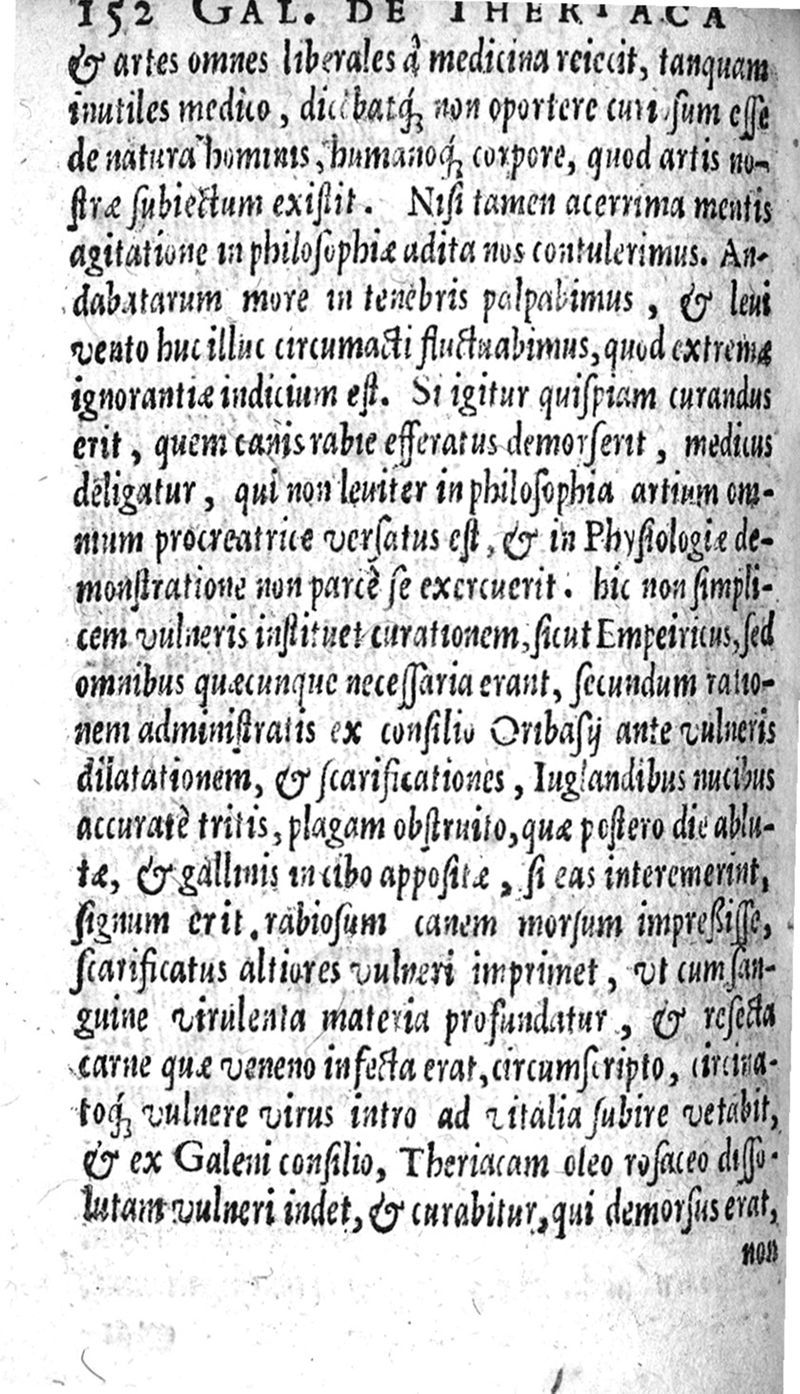 152 GAL. DE THERIACA
& artes omnes liberales à medicina reiecit, tanquam
inutiles medico, dicebatq́; non oportere curiosum esse
de natura hominis, humanoq́; corpore, quod artis no-
stræ subiectum existit. Nisi tamen acerrima mentis
agitatione in philosophiæ adita nos contulerimus. An-
dabatarum more in tenebris palpabimus, & leui
vento huc illuc circumacti fluctuabimus, quod extremæ
ignorantiæ indicium est. Si igitur quispiam curandus
erit, quem canis rabie efferatus demorserit, medicus
deligatur, qui non leuiter in philosophia artium om-
nium procreatrice versatus est, & in Physiologiæ de-
monstratione non parcè se exercuerit. hic non simpli-
cem vulneris instituet curationem, sicut Empeiricus, sed
omnibus quæcunque necessaria erant, secundum ratio-
nem administratis ex consilio Oribasij ante vulneris
dilatationem, & scarificationes, Iuglandibus nucibus
accuratè tritis, plagam obstruito, quæ postero die ablu-
tæ, & gallinis in cibo appositæ, si eas interemerint,
signum erit rabiosum canem morsum impreßisse,
scarificatus altiores vulneri imprimet, vt cum san-
guine virulenta materia profundatur, & resecta
carne quæ veneno infecta erat, circumscripto, circina-
toq́; vulnere virus intro ad vitalia subire vetabit,
& ex Galeni consilio, Theriacam oleo rosaceo disso-
lutam vulneri indet, & curabitur, qui demorsus erat,
non